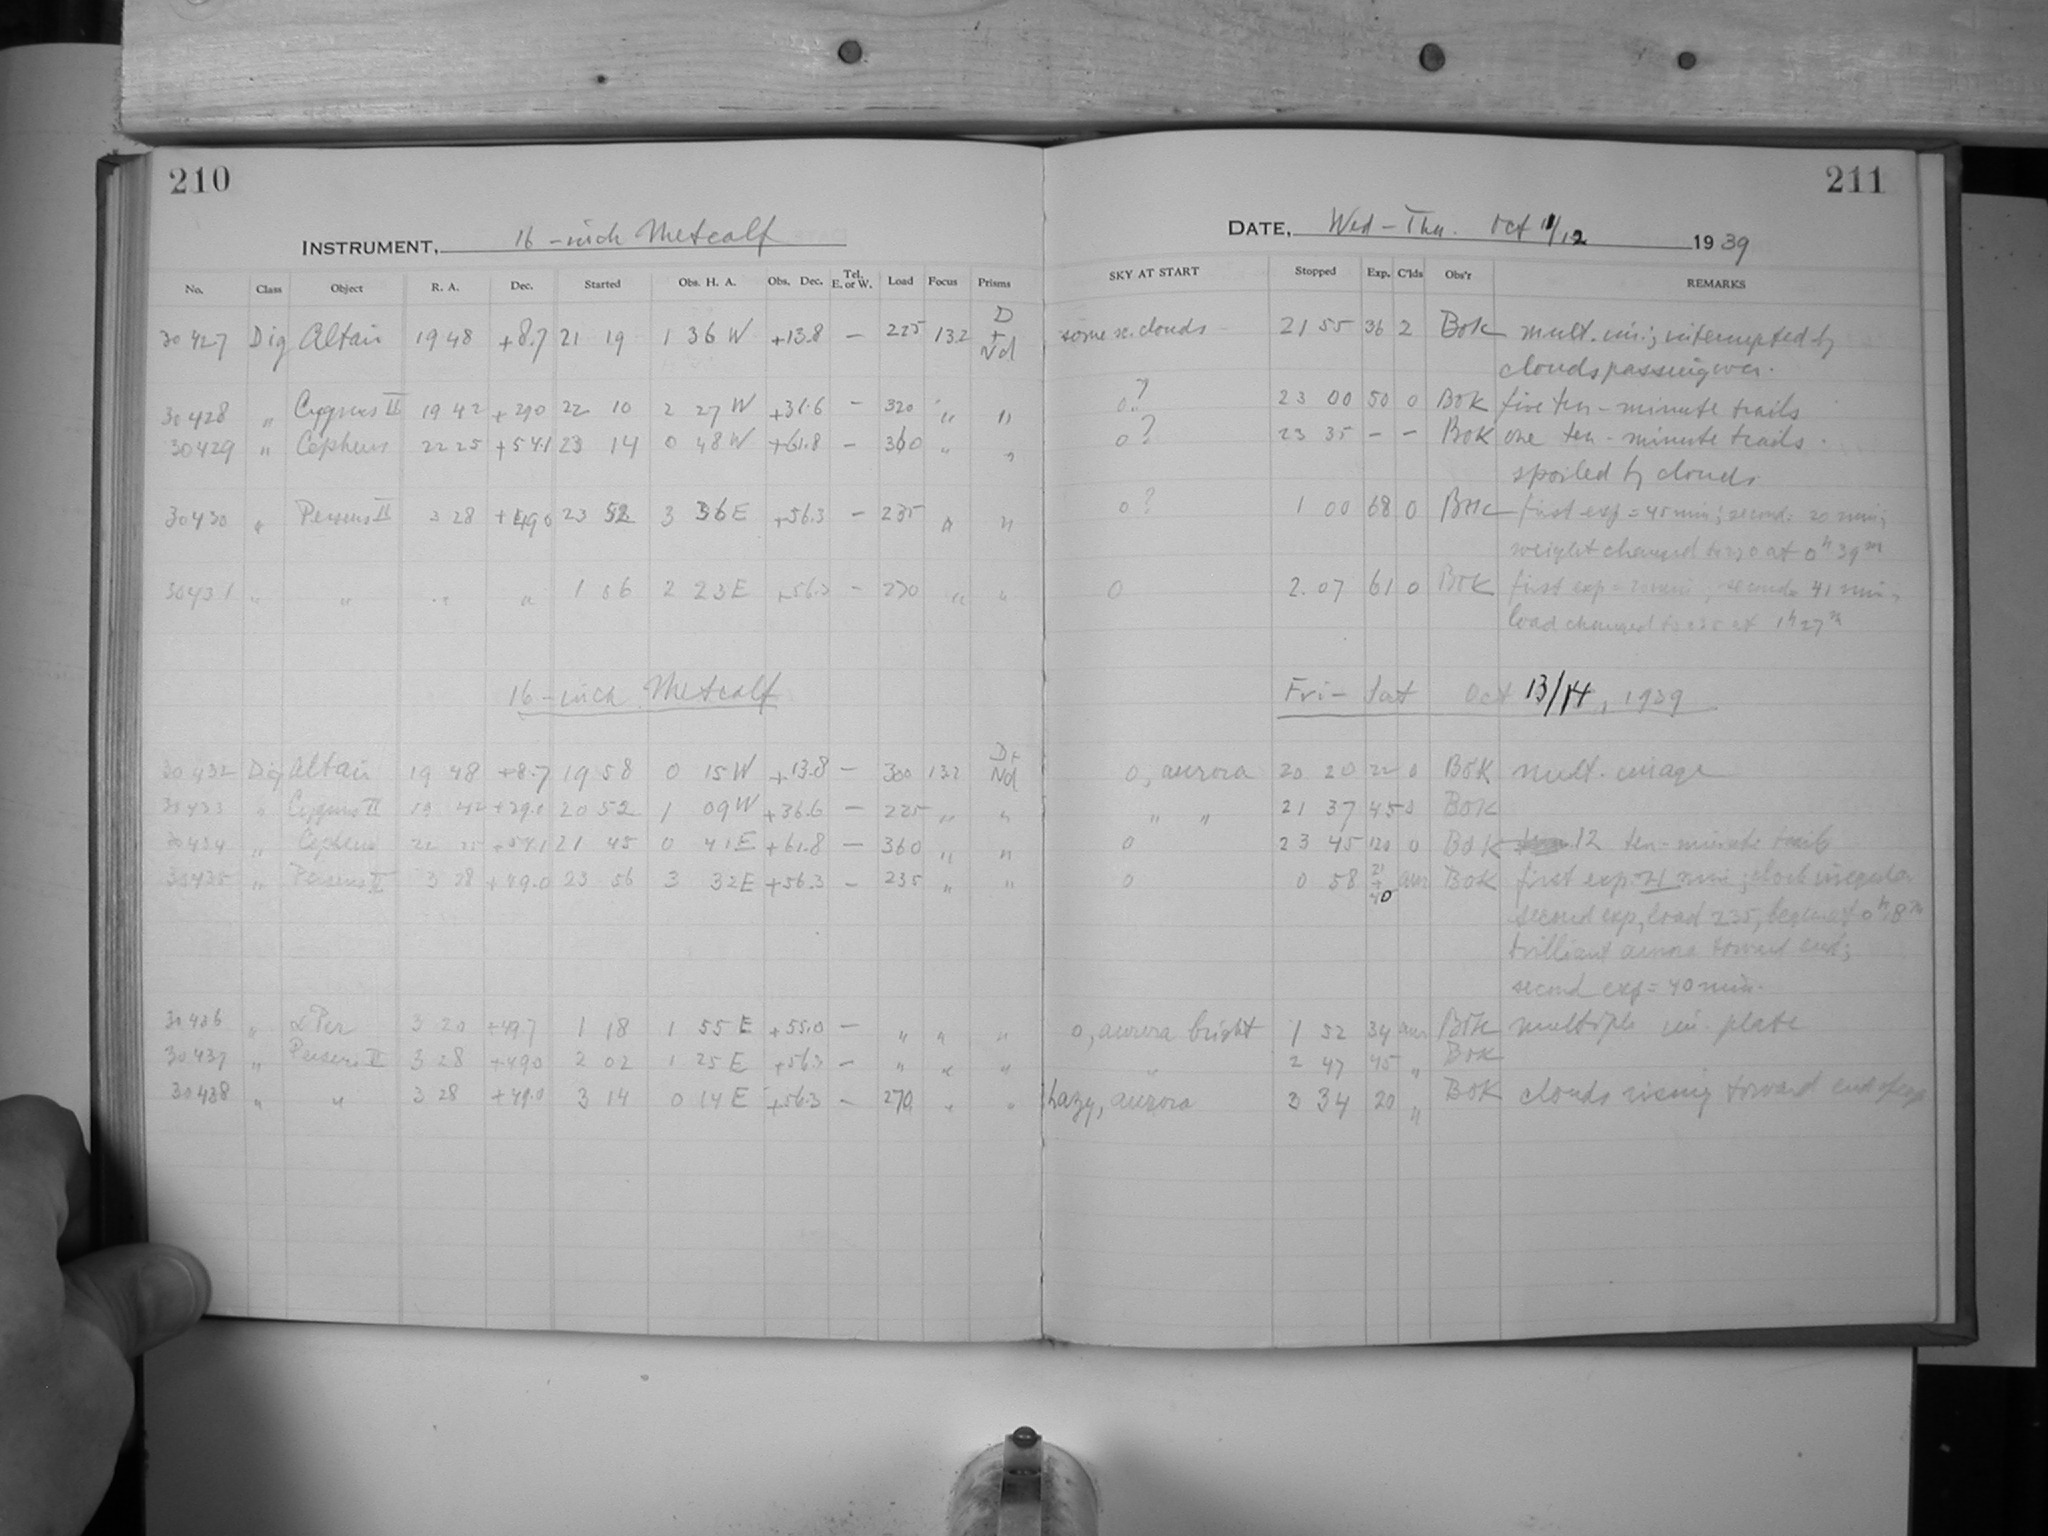 210
211
INSTRUMENT, 16-inch Metcalf
DATE, Wed-Thu. Oct 11/12 1939
No. Class Object R. A. Dec. Started Obs. H. A. Obs. Dec. Tel. E. or W. Load Focus Prisms SKY AT START Stopped Exp. C'lds Obs'r REMARKS
30427 Dig Altair 19 48 +8.7 21 19 1 36 W +13.8 — 225 13.2 D + Nd some clouds 21 55 36 2 Bok mult. im.; interrupted by
clouds passing over.
30428 " Cygnus II 19 42 +29.0 22 10 2 27 W +36.6 — 320 " " 0? 23 00 50 0 Bok five ten-minute trails
30429 " Cepheus 22 25 +54.1 23 14 0 48 W +61.8 — 360 " " 0? 23 35 – – Bok one ten-minute trails.
spoiled by clouds
30430 " Perseus II 3 28 +49.0 23 52 3 36 E +56.3 — 235 " " 0? 1 00 68 0 Bok first exp = 45 min; second: 20 min;
weight changed to 270 at 0h 39m
30431 " " " " 1 06 2 23 E +56.3 — 270 " " 0 2.07 61 0 Bok first exp = 20 min, second = 41 min,
load changed to 235 at 1h 27m
16-inch Metcalf
Fri-Sat Oct 13/14, 1939
30432 Dig Altair 19 48 +8.7 19 58 0 15 W +13.8 — 300 13.2 D+ Nd 0, aurora 20 20 22 0 Bok mult. image
30433 " Cygnus II 19 42 +29.0 20 52 1 09 W +36.6 — 225 " " " " 21 37 45 0 Bok
30434 " Cepheus 22 25 +54.1 21 45 0 41 E +61.8 — 360 " " 0 23 45 120 0 Bok 12 ten-minute trails
30435 " Perseus II 3 28 +49.0 23 56 3 32 E +56.3 — 235 " " 0 0 58 21 + 40 aur Bok first exp = 21 min; clock irregular
second exp, load 235, began at 0h 18m
brilliant aurora toward end;
second exp = 40 min.
30436 " α Per 3 20 +49.7 1 18 1 55 E +55.0 — " " " 0, aurora bright 1 52 34 aur Bok multiple im. plate
30437 " Perseus II 3 28 +49.0 2 02 1 25 E +56.3 — " " " " 2 47 45 " Bok
30438 " " 3 28 +49.0 3 14 0 14 E +56.3 — 270 " " hazy, aurora 3 34 20 " Bok clouds rising toward end of exp